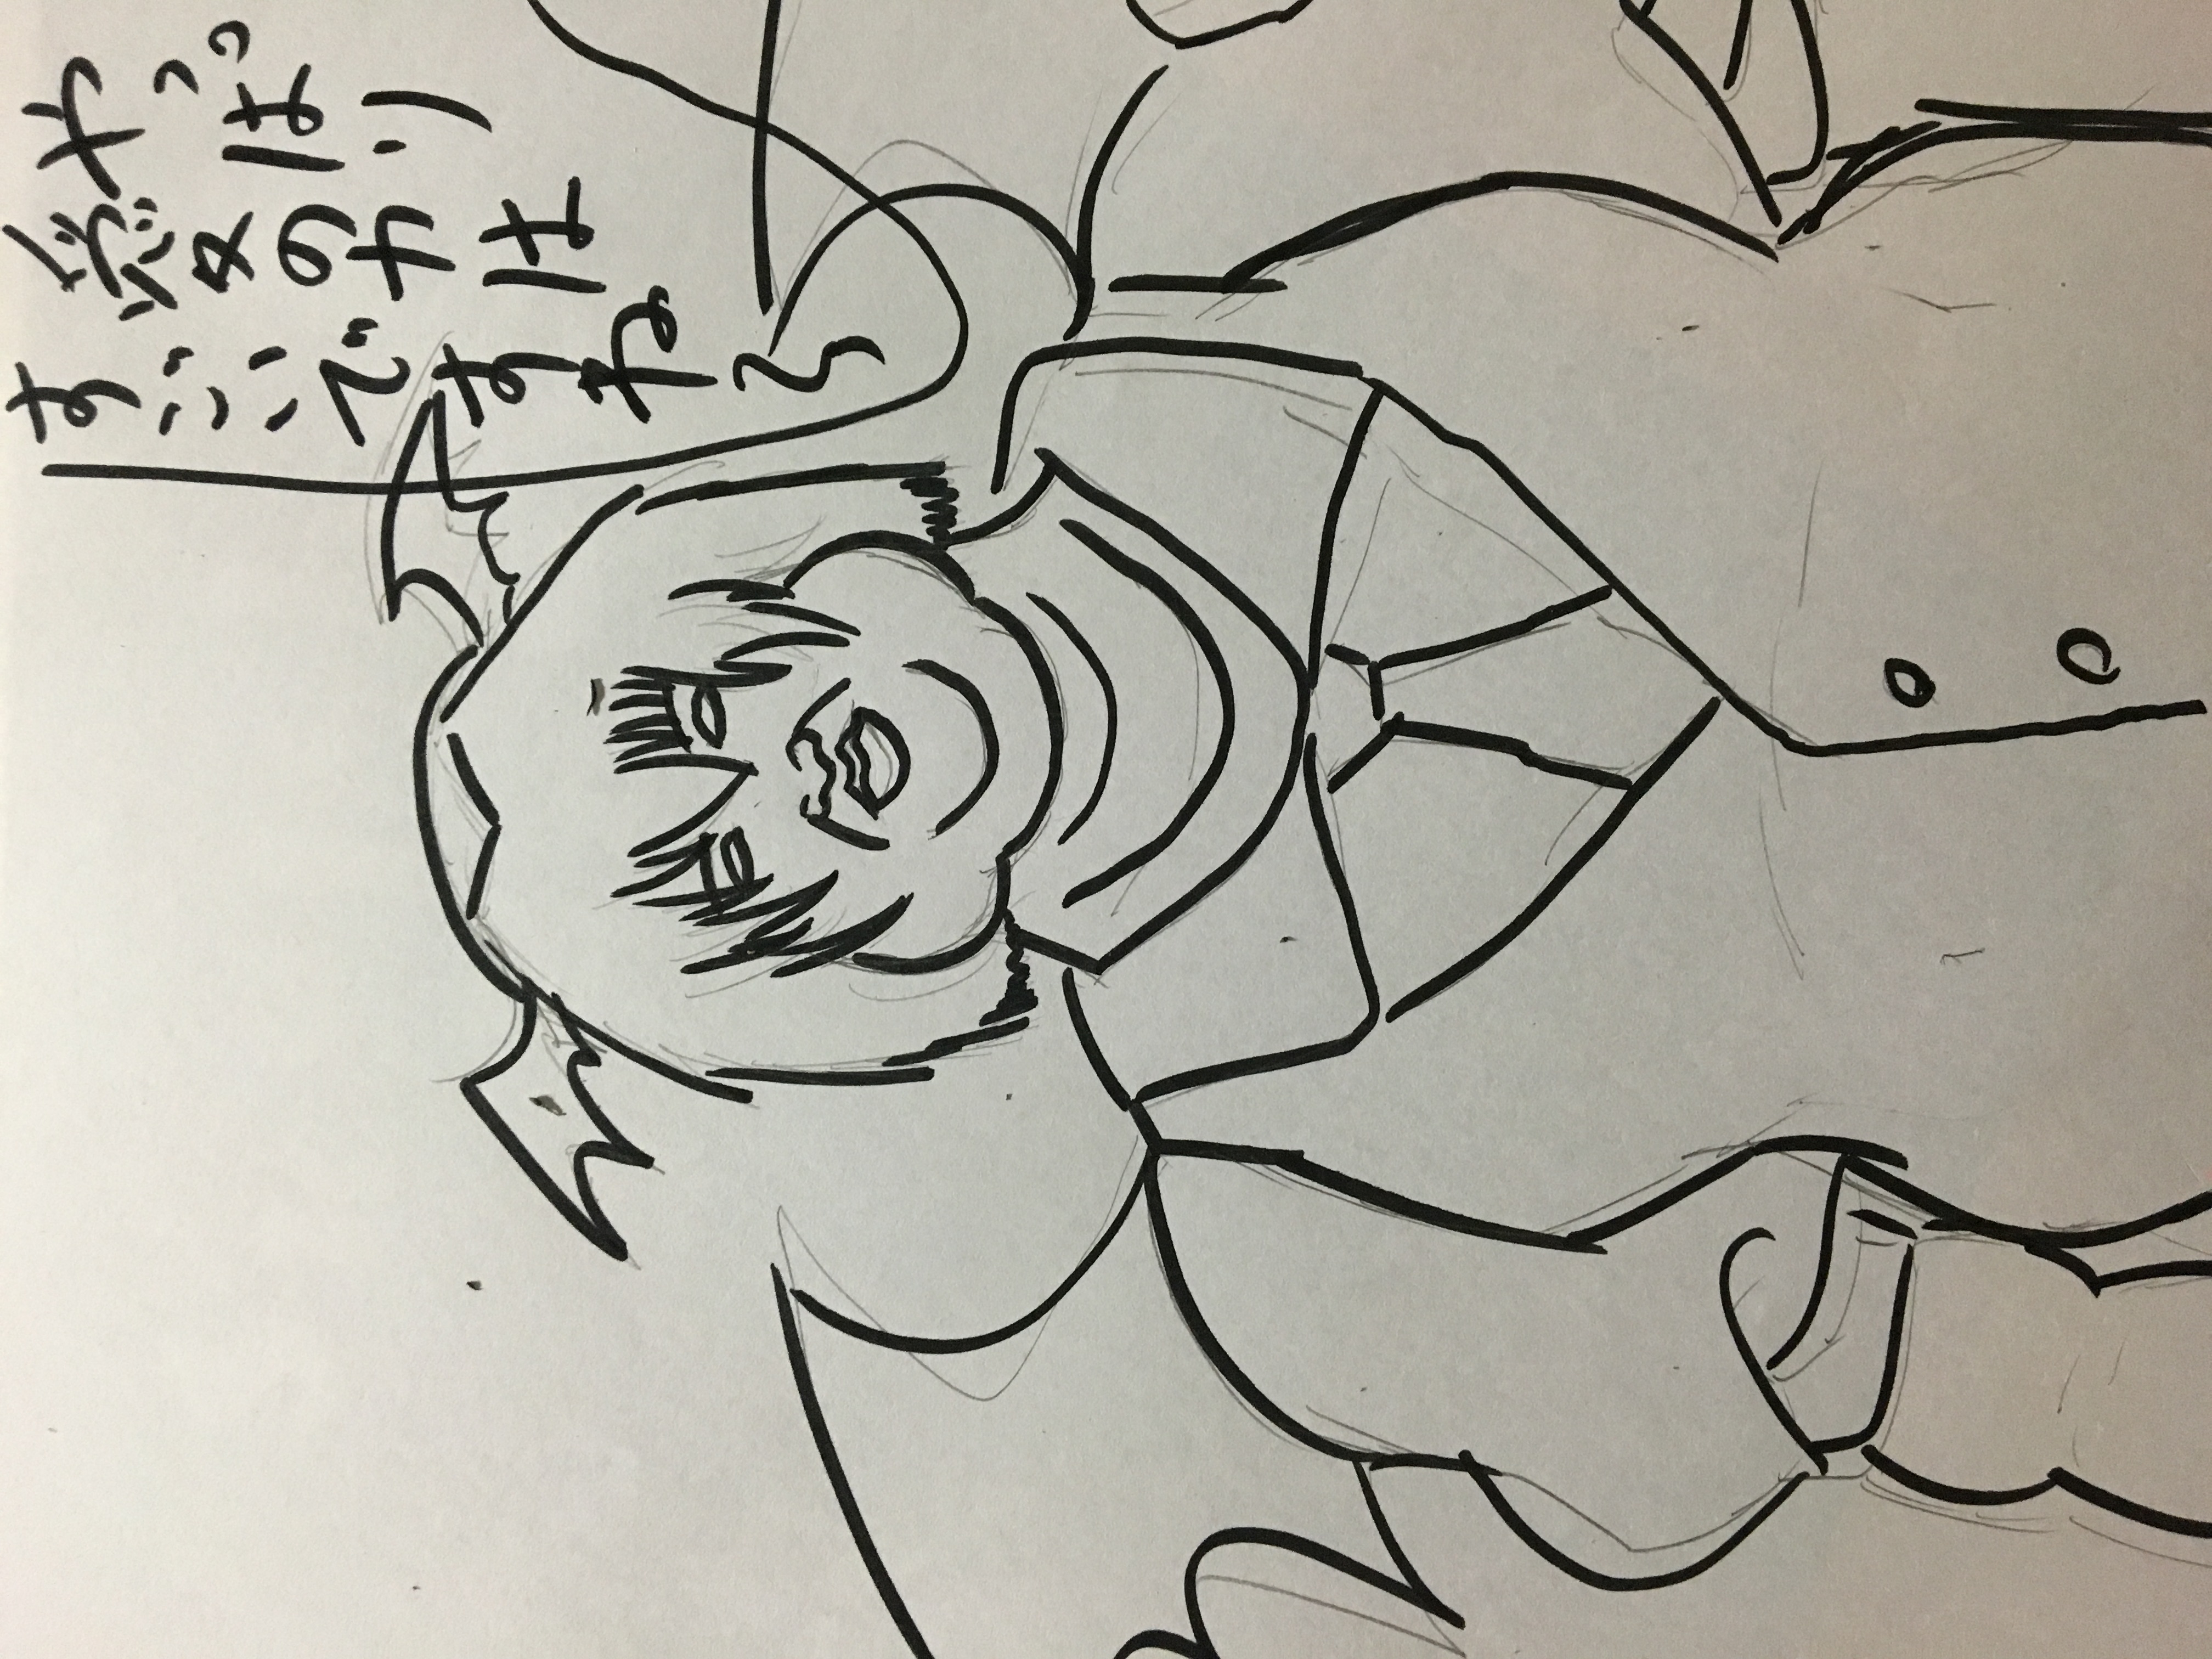 やっぱり
愛の力は
すごいですね〜